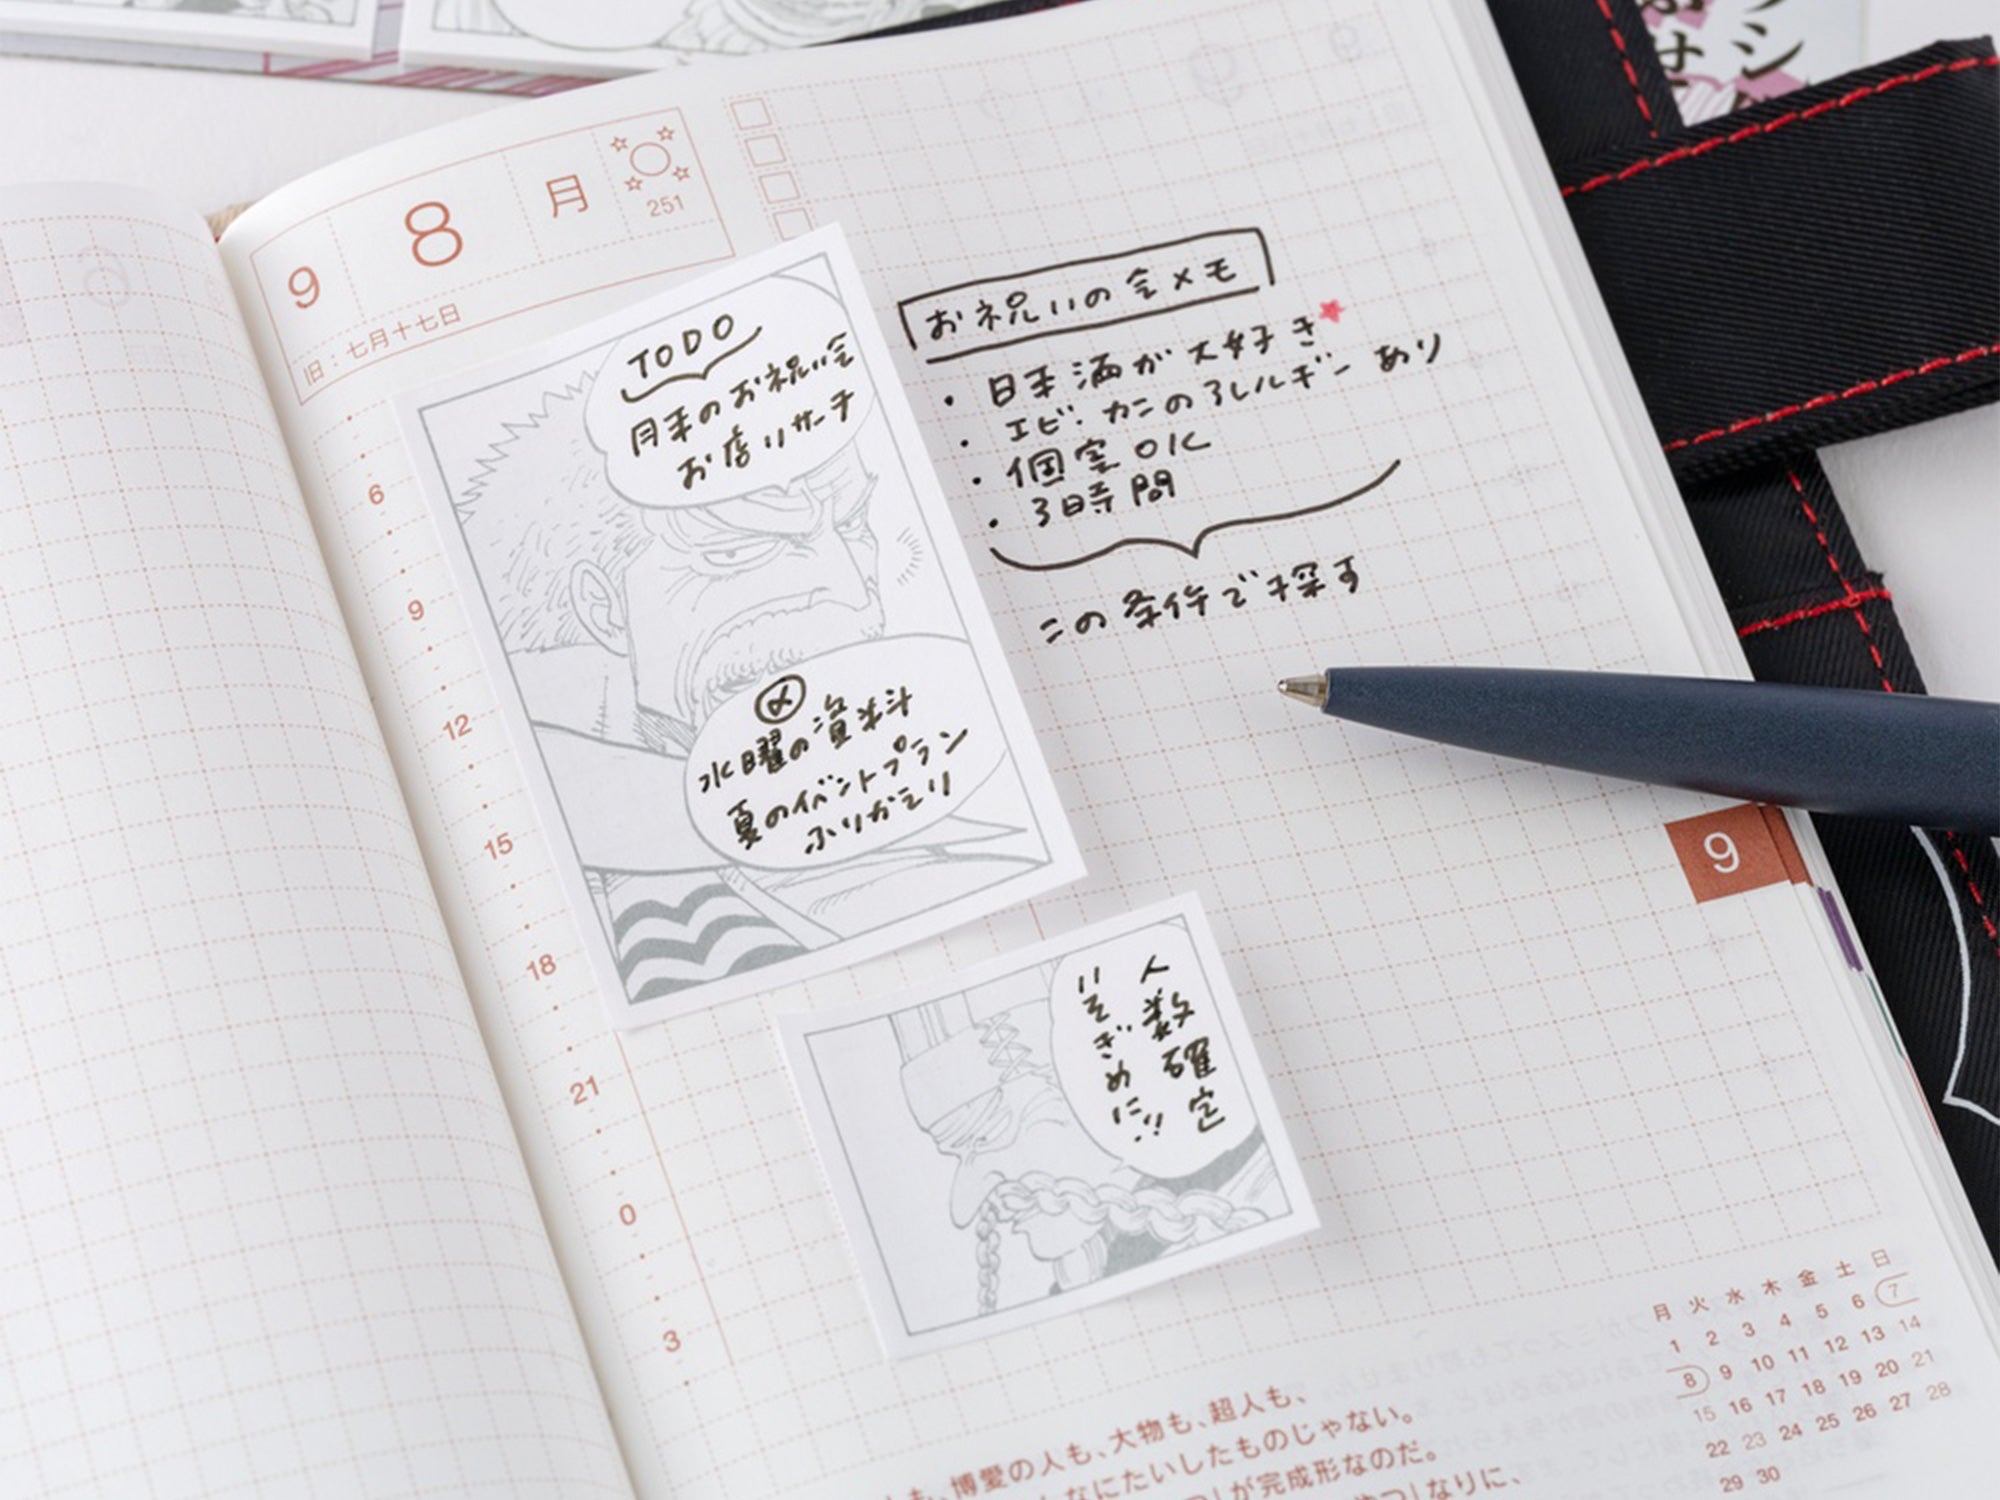 9 8 月
251
旧：七月十七日
TODO
月末のお祝い会
お店リサーチ
〆
水曜の資料
夏のイベントプラン
ふりかえり
お祝いの会メモ
・日本酒が大好き
・エビ・カニのアレルギーあり
・個室OK
・3時間
この条件で探す
人数確定
いそぎめに!!
6
9
12
15
18
21
0
3
9
月 火 水 木 金 土 日
1 2 3 4 5 6 7
8 9 10 11 12 13 14
15 16 17 18 19 20 21
22 23 24 25 26 27 28
29 30
も、博愛の人も、大物も、超人も、
なにたいしたものじゃない。
が完成形なのだ。
なりに、